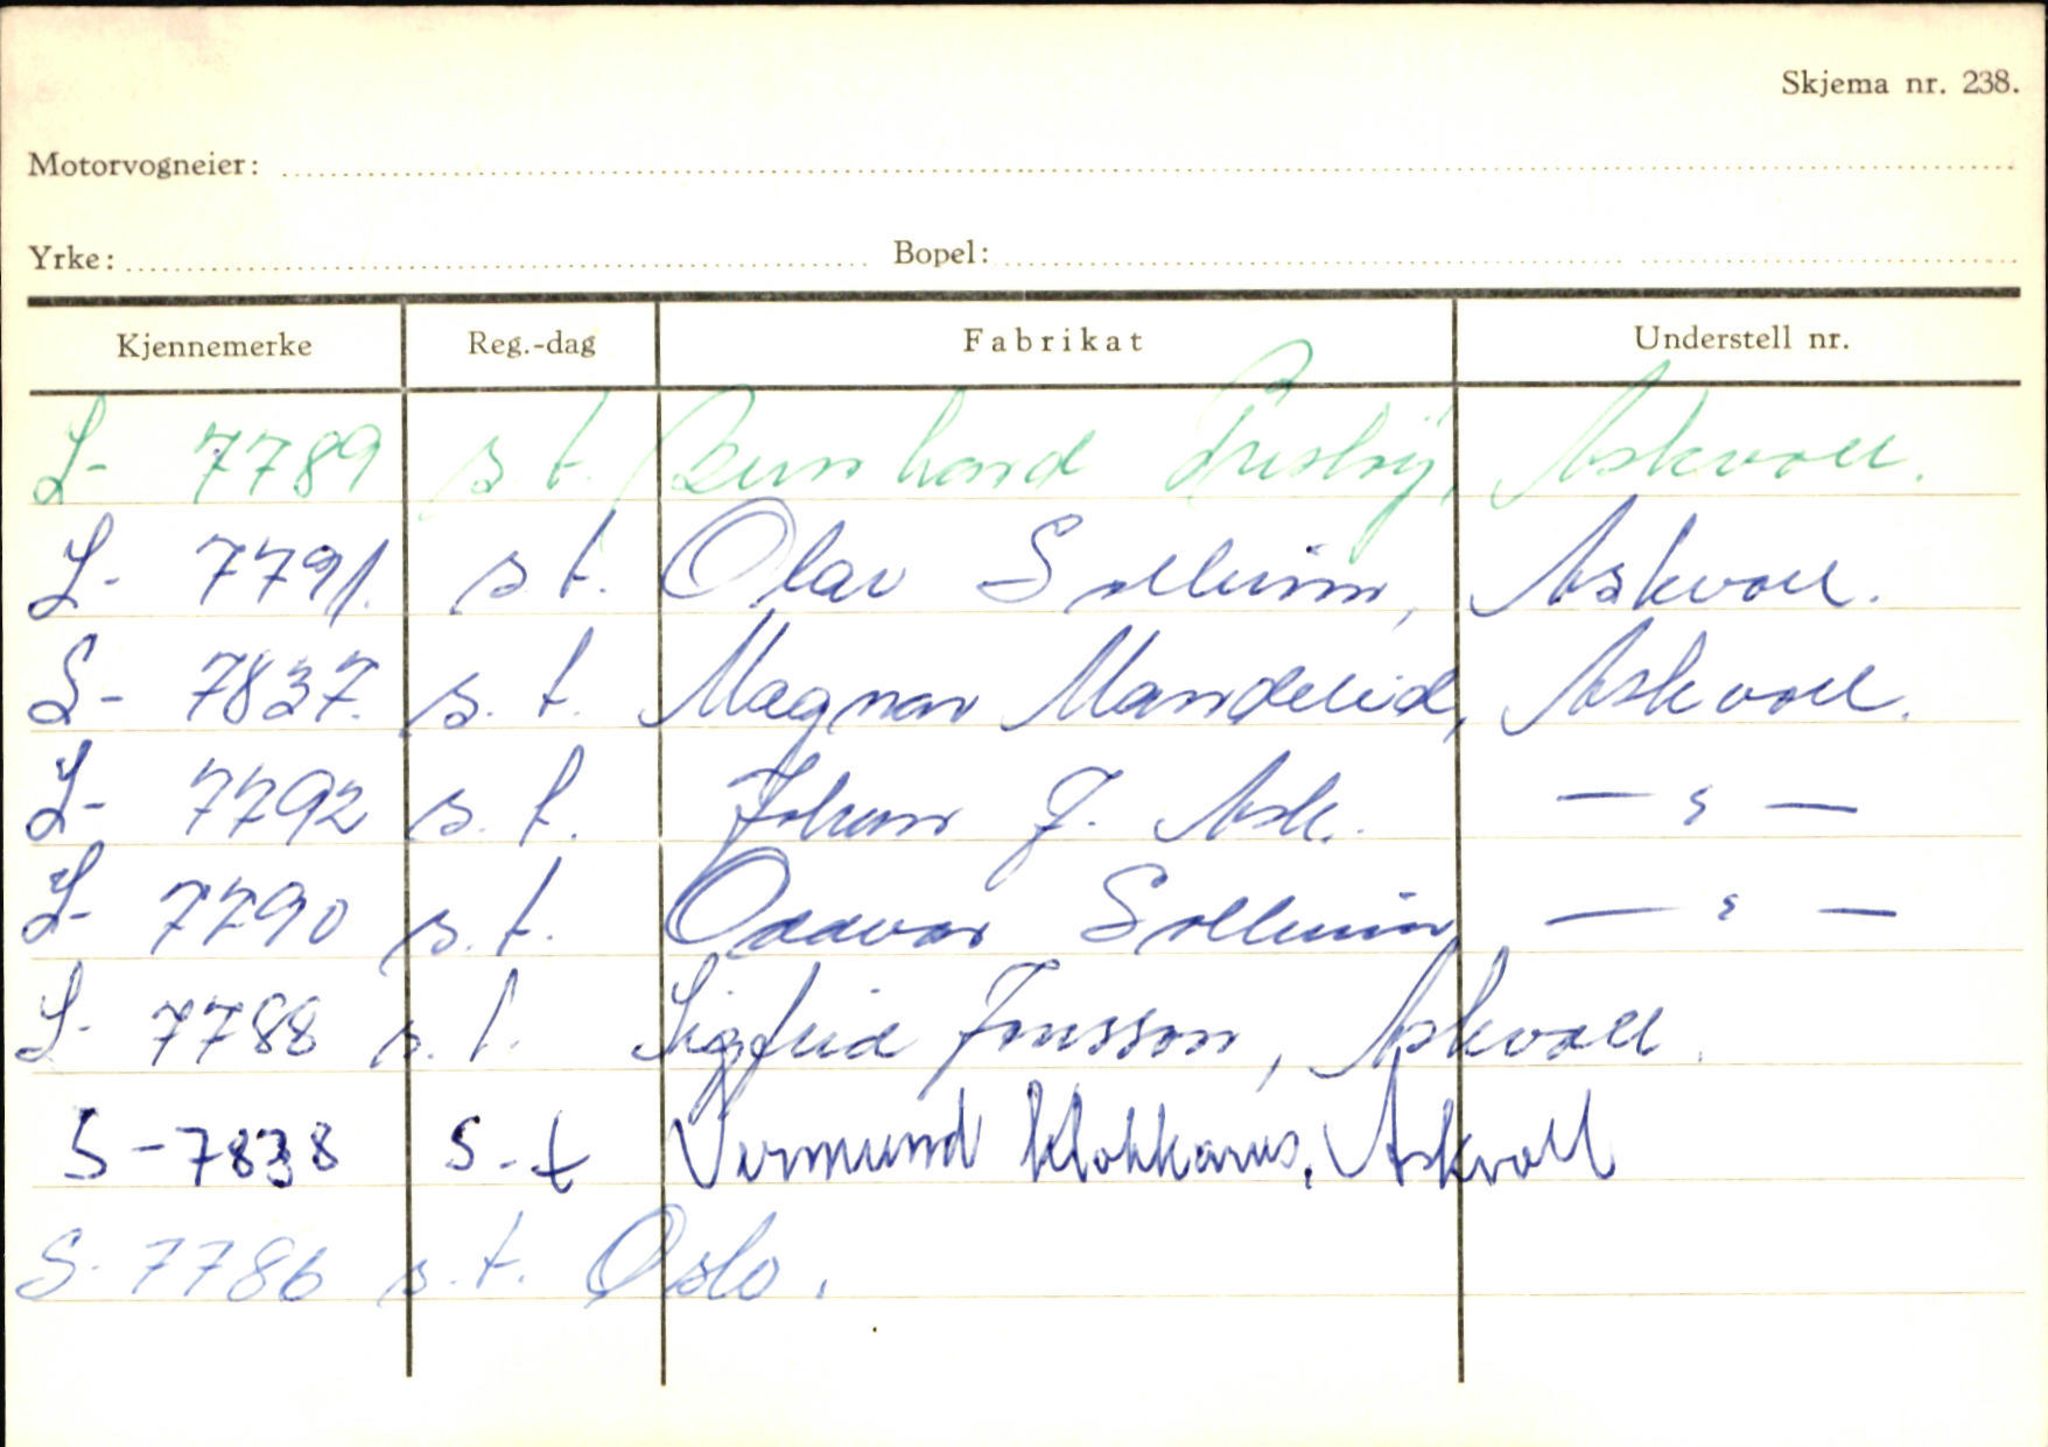 Skjema nr. 238.
Motorvogneier:
Yrke: Bopel:
Kjennemerke Reg.-dag Fabrikat Understell nr.
S- 7789 s.t. Bernhard Askvoll.
S- 7791. s.t. Olav Solheim, Askvoll.
S- 7837. s.t. Magnar Mandelid, Askvoll.
S- 7792 s.t. Johan J. Ask. — " —
S- 7790 s.t. Oddvar Solheim — " —
S- 7788 s.t. Sigfrid Jonsson, Askvoll.
S-7838 s-t Vermund Klokkarus. Askvoll
S- 7786 s.t. Oslo.